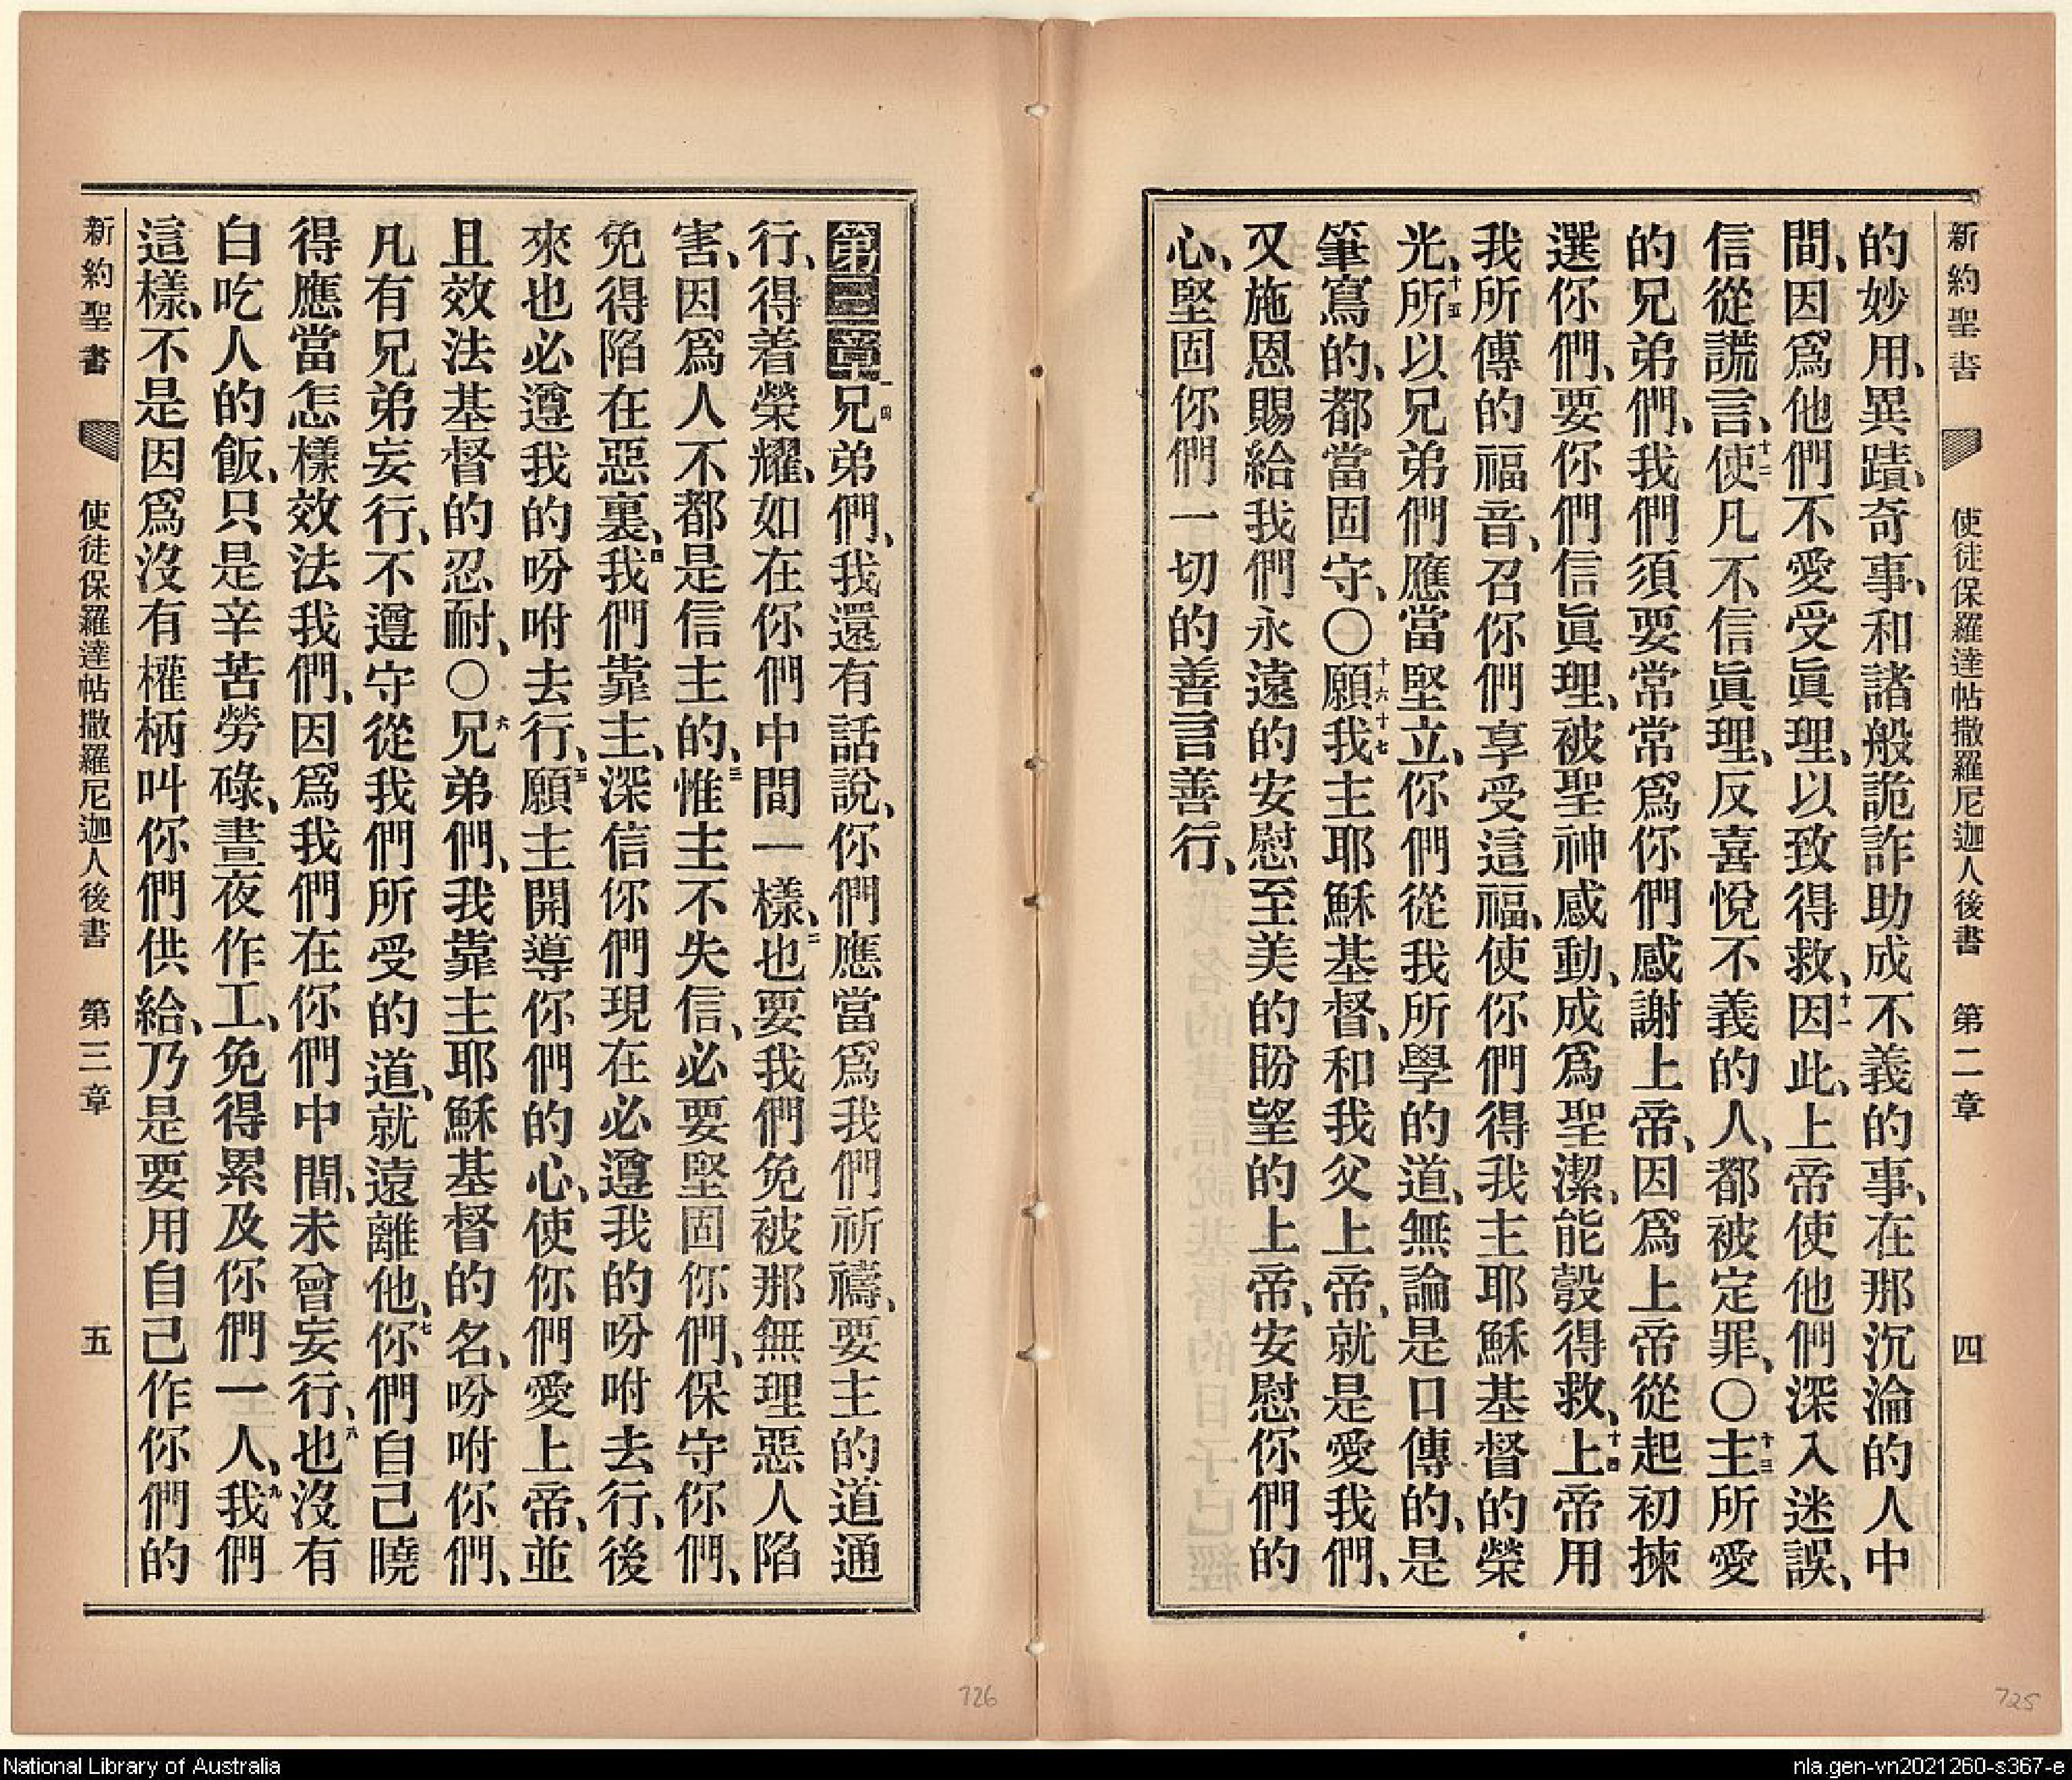 新約聖書 使徒保羅達帖撒羅尼迦人後書 第二章 四
的妙用、異蹟、奇事、和諸般詭詐助成不義的事、在那沉淪的人中
間、因爲他們不愛受眞理、以致得救、十一因此、上帝使他們深入迷誤、
信從謊言、十二使凡不信眞理、反喜悅不義的人、都被定罪、〇十三主所愛
的兄弟們、我們須要常常爲你們感謝上帝、因爲上帝從起初揀
選你們、要你們信眞理、被聖神感動、成爲聖潔、能彀得救、十四上帝用
我所傳的福音、召你們享受這福、使你們得我主耶穌基督的榮
光、十五所以兄弟們應當堅立、你們從我所學的道、無論是口傳的、是
筆寫的、都當固守、〇十六十七願我主耶穌基督、和我父上帝、就是愛我們、
又施恩賜給我們永遠的安慰至美的盼望的上帝、安慰你們的
心、堅固你們一切的善言善行、
第三章一兄弟們、我還有話說、你們應當爲我們祈禱、要主的道通
行、得着榮耀、如在你們中間一樣、二也要我們免被那無理惡人陷
害、因爲人不都是信主的、三惟主不失信、必要堅固你們、保守你們、
免得陷在惡裏、四我們靠主、深信你們現在必遵我的吩咐去行、後
來也必遵我的吩咐去行、五願主開導你們的心、使你們愛上帝、並
且效法基督的忍耐、〇六兄弟們、我靠主耶穌基督的名、吩咐你們、
凡有兄弟妄行、不遵守從我們所受的道、就遠離他、七你們自己曉
得應當怎樣效法我們、因爲我們在你們中間、未曾妄行、八也沒有
白吃人的飯、只是辛苦勞碌、晝夜作工、免得累及你們一人、九我們
這樣、不是因爲沒有權柄叫你們供給、乃是要用自己作你們的
新約聖書 使徒保羅達帖撒羅尼迦人後書 第三章 五
726
725
National Library of Australia
nla.gen-vn2021260-s367-e